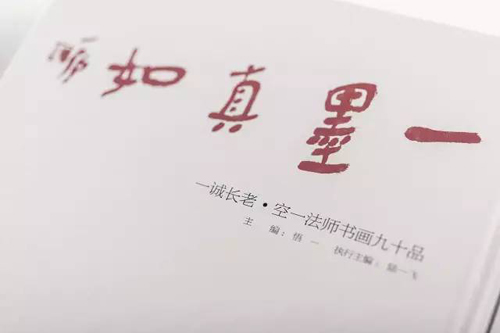 一墨真如
一诚长老·空一法师书画九十品
主 编：悟 一 执行主编：